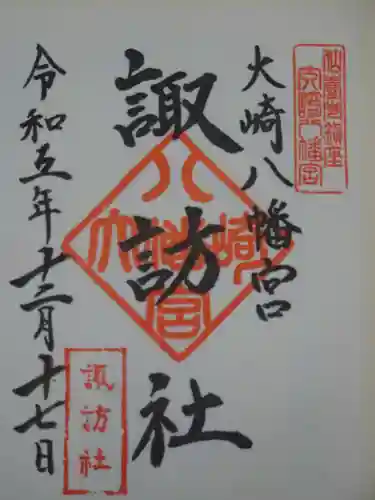 仙臺鎮座
大崎八幡宮
大崎八幡宮
諏訪社
大崎八幡宮
令和五年十二月十七日
諏訪社